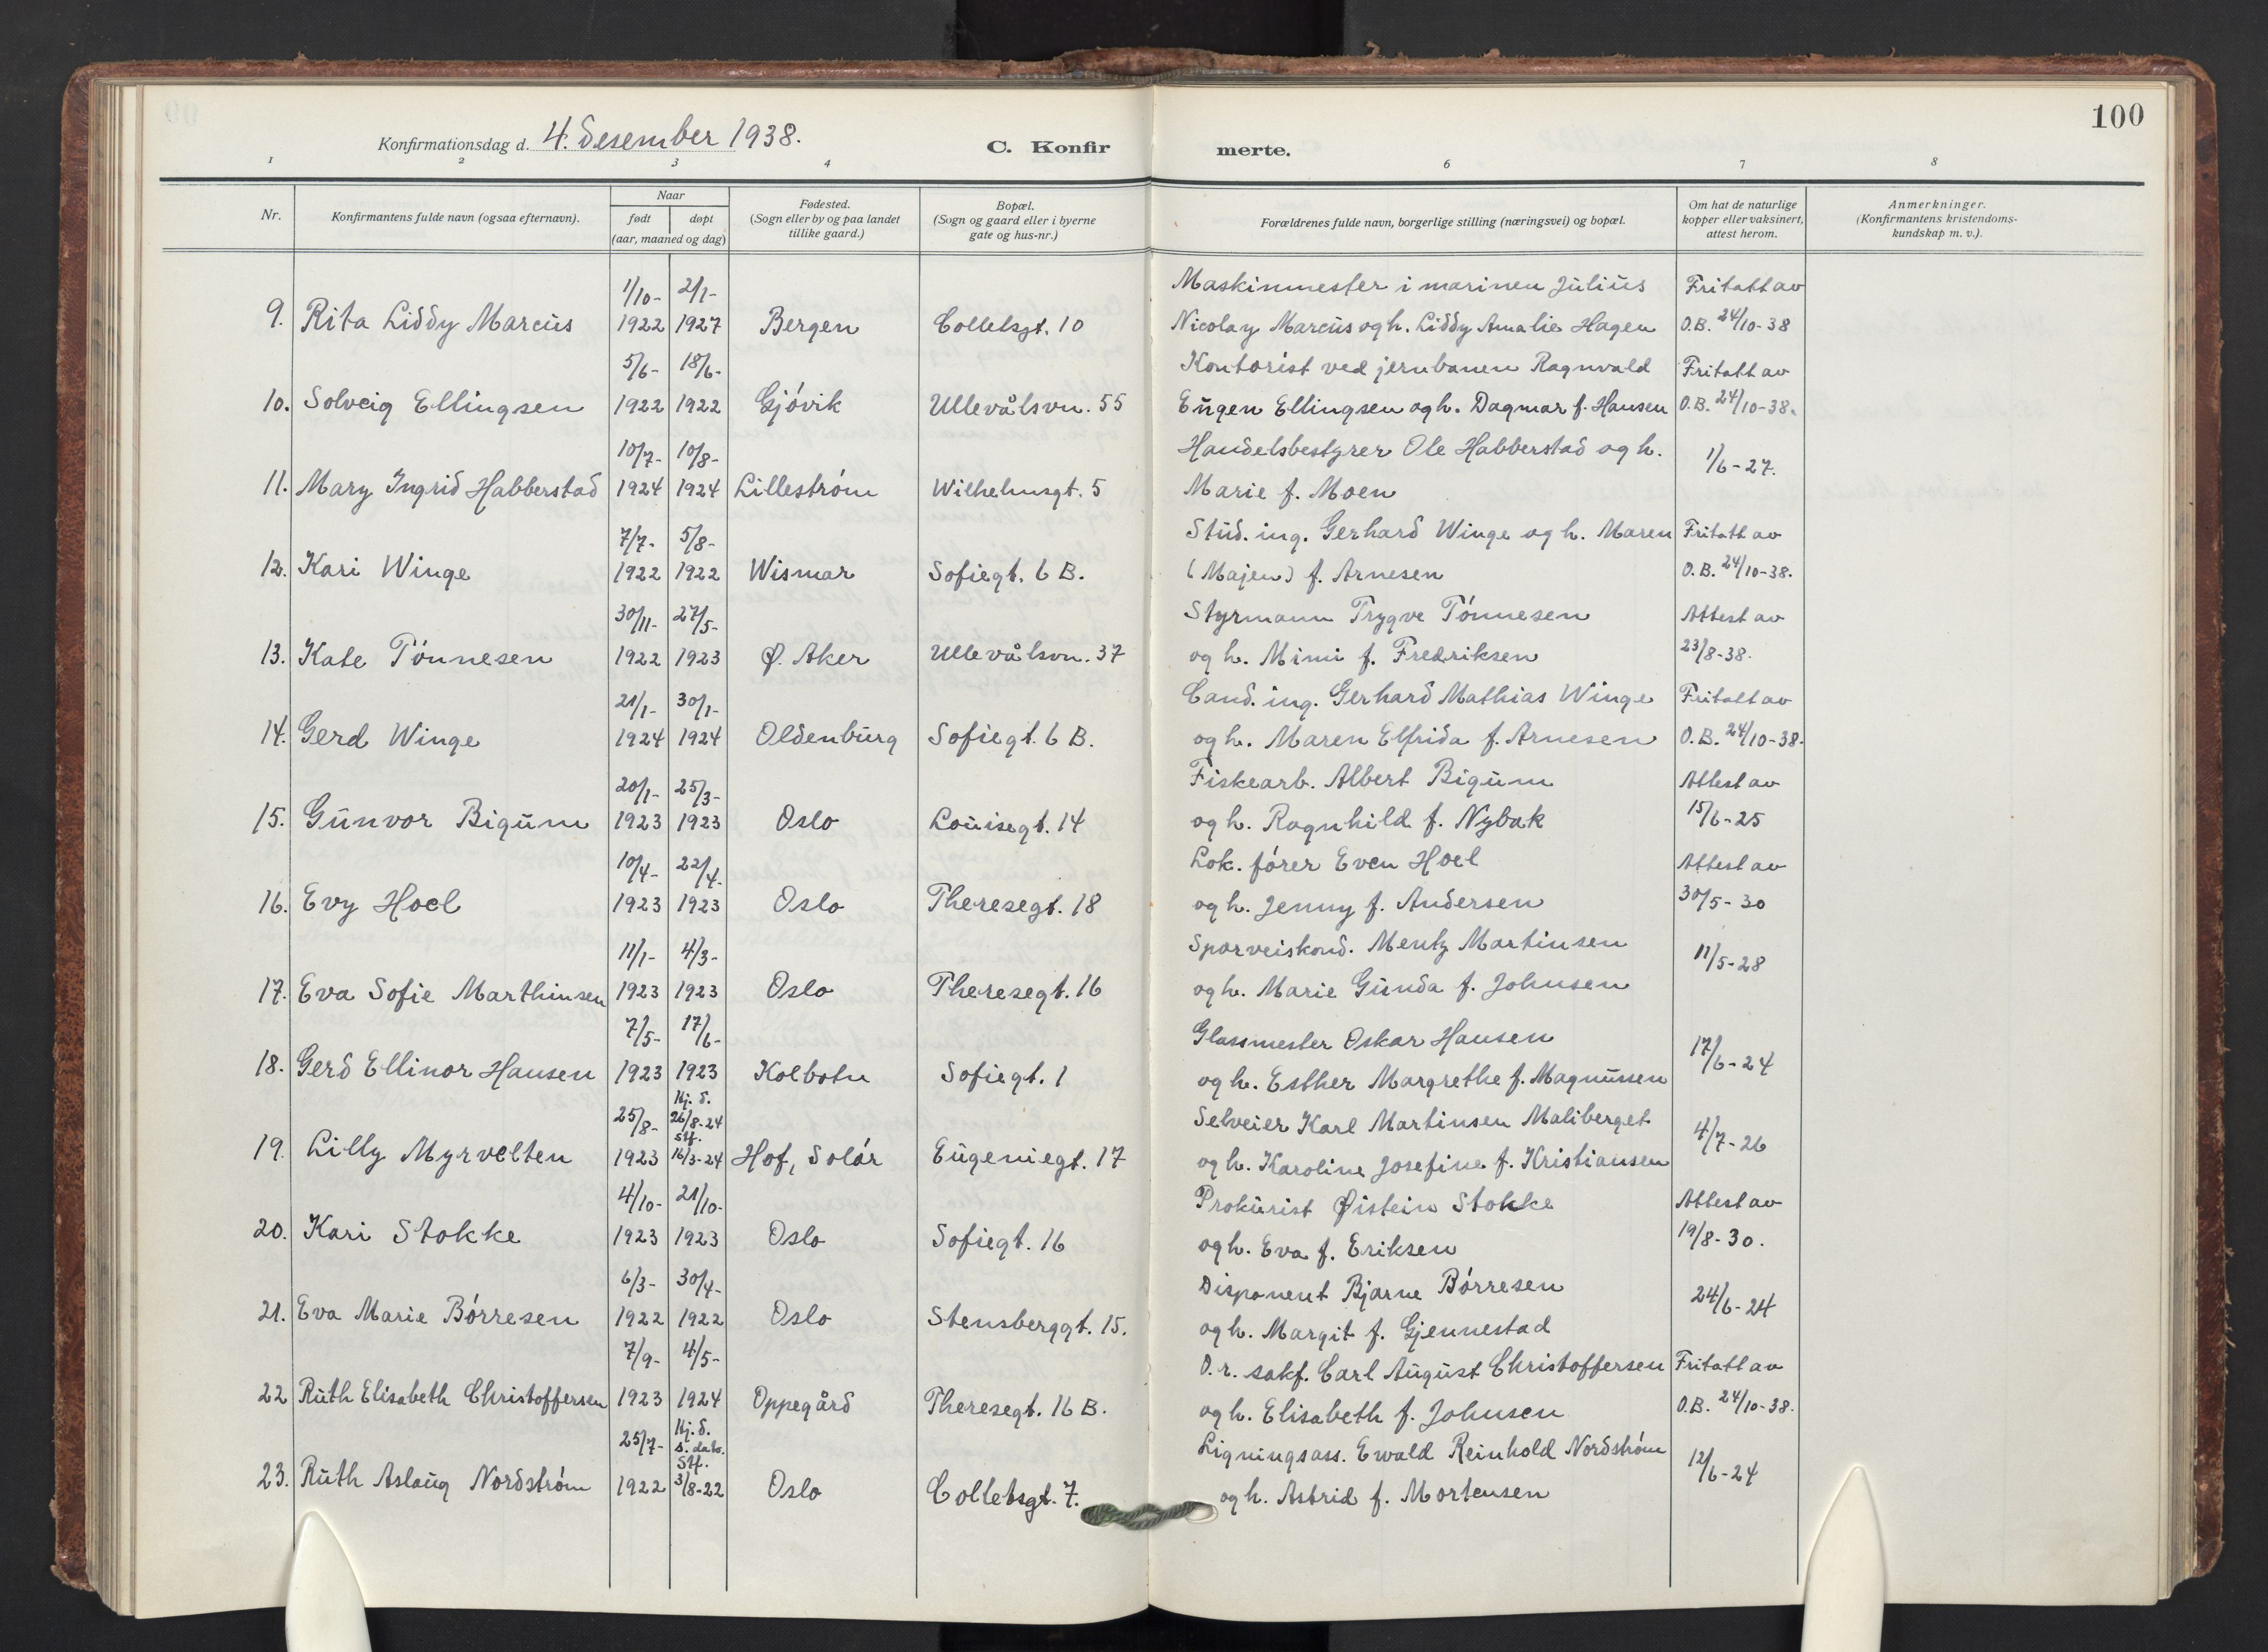 100
Konfirmationsdag d. 4. desember 1938. C. Konfirmerte.
1 2 3 4 6 7 8
Nr. Konfirmantens fulde navn (ogsaa efternavn). Naar født døpt (aar, maaned og dag) Fødested. (Sogn eller by og paa landet tillike gaard.) Bopæl. (Sogn og gaard eller i byerne gate og hus-nr.) Forældrenes fulde navn, borgerlige stilling (næringsvei) og bopæl. Om hat de naturlige kopper eller vaksinert, attest herom. Anmerkninger. (Konfirmantens kristendoms-kundskap m. v.).
1/10- 2/1- Maskinmester i marinen Julius Fritatt av
9. Rita Liddy Marcus 1922 1927 Bergen Colletsgt. 10 Nicolay Marcus og h. Liddy Amalie Hagen O.B. 24/10-38
5/6- 18/6- Kontorist ved jernbanen Ragnvald Fritatt av
10. Solveig Ellingsen 1922 1922 Gjóvik Ullevålsvn. 55 Eugen Ellingsen og h. Dagmar f. Hansen O.B. 24/10-38.
10/7- 10/8- Handelsbestyrer Ole Habberstad og h. 1/6-27.
11. Mary Ingrid Habberstad 1924 1924 Lillestróm Wilhelmsgt. 5 Marie f. Moen
7/7- 5/8- Stud. ing. Gerhard Winge og h. Maren Fritatt av
12. Kari Winge 1922 1922 Wismar Sofiegt. 6 B. (Majen) f. Arnesen O.B. 24/10-38.
30/11- 27/5- Styrmann Trygve Tónnesen Attest av
13. Kate Tónnesen 1922 1923 Ø. Aker Ullevålsvn. 37 og h. Mimi f. Fredriksen 23/8-38.
21/1- 30/1- Cand. ing. Gerhard Mathias Winge Fritatt av
14. Gerd Winge 1924 1924 Oldenburg Sofiegt. 6 B. og h. Maren Elfrida f. Arnesen O.B. 24/10-38.
20/1- 25/3- Fiskearb. Albert Bigum Attest av
15. Gunvor Bigum 1923 1923 Oslo Louisegt. 14 og h. Ragnhild f. Nybak 15/6-25
10/4- 22/4- Lok. fórer Even Hoel Attest av
16. Evy Hoel 1923 1923 Oslo Theresegt. 18 og h. Jenny f. Andersen 30/5-30
11/1- 4/3- Sporveiskond. Mentz Martinsen 11/5-28
17. Eva Sofie Marthinsen 1923 1923 Oslo Theresegt. 16 og h. Marie Gunda f. Johnsen
7/5- 17/6- Glassmester Oskar Hansen 17/6-24
18. Gerd Ellinor Hansen 1923 1923 Kolbotn Sofiegt. 1 og h. Esther Margrethe f. Magnussen
25/8- Hj. d. 26/8-24 Selveier Karl Martinsen Maliberget 4/7-26
19. Lilly Myrvelten 1923 Stf. 16/3-24 Hof, Solór Eugeniegt. 17 og h. Karoline Josefine f. Kristiansen
4/10- 21/10- Prokurist Øistein Stokke Attest av
20. Kari Stokke 1923 1923 Oslo Sofiegt. 16 og h. Eva f. Eriksen 19/8-30.
6/3- 30/4- Disponent Bjarne Bórresen 24/6-24
21. Eva Marie Bórresen 1922 1922 Oslo Stensberggt. 15. og h. Margit f. Gjennestad
7/9- 4/5- O.r. sakf. Carl August Christoffersen Fritatt av
22 Ruth Elisabeth Christoffersen 1923 1924 Oppegård Theresegt. 16 B. og h. Elisabeth f. Johnsen O.B. 24/10-38.
25/7- Hj. d. s. dato. Ligningsass. Ewald Reinhold Nordstróm 12/6-24
23. Ruth Aslaug Nordstróm 1922 Stf. 3/8-22 Oslo Colletsgt. 7. og h. Astrid f. Mortensen